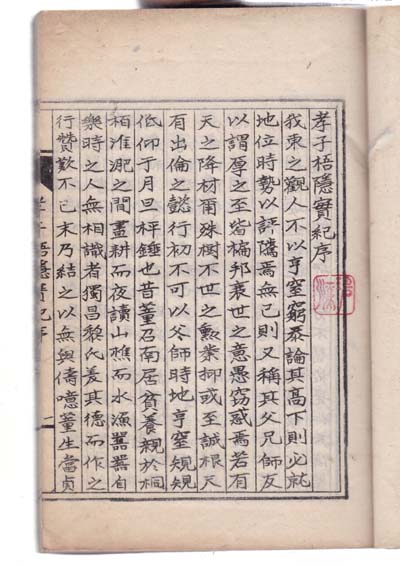 孝子梧隱實紀序
我東之觀人不以亨窒窮泰論其高下則必就
地位時勢以評隲焉無已則又稱其父兄師友
以謂厚之至皆褊邦衰世之意愚竊惑焉若有
天之降材爾殊樹不世之勲業抑或至誠根天
有出倫之懿行初不可以父師時地亨窒規規
低仰于月旦枰錘也昔董召南居貧養親於桐
栢淮淝之間晝耕而夜讀山樵而水漁嚣嚣自
樂時之人無相識者獨昌黎氏羨其德而作之
行贊歎不已末乃結之以無與儔噫董生當貞
孝子梧隱實紀序
一